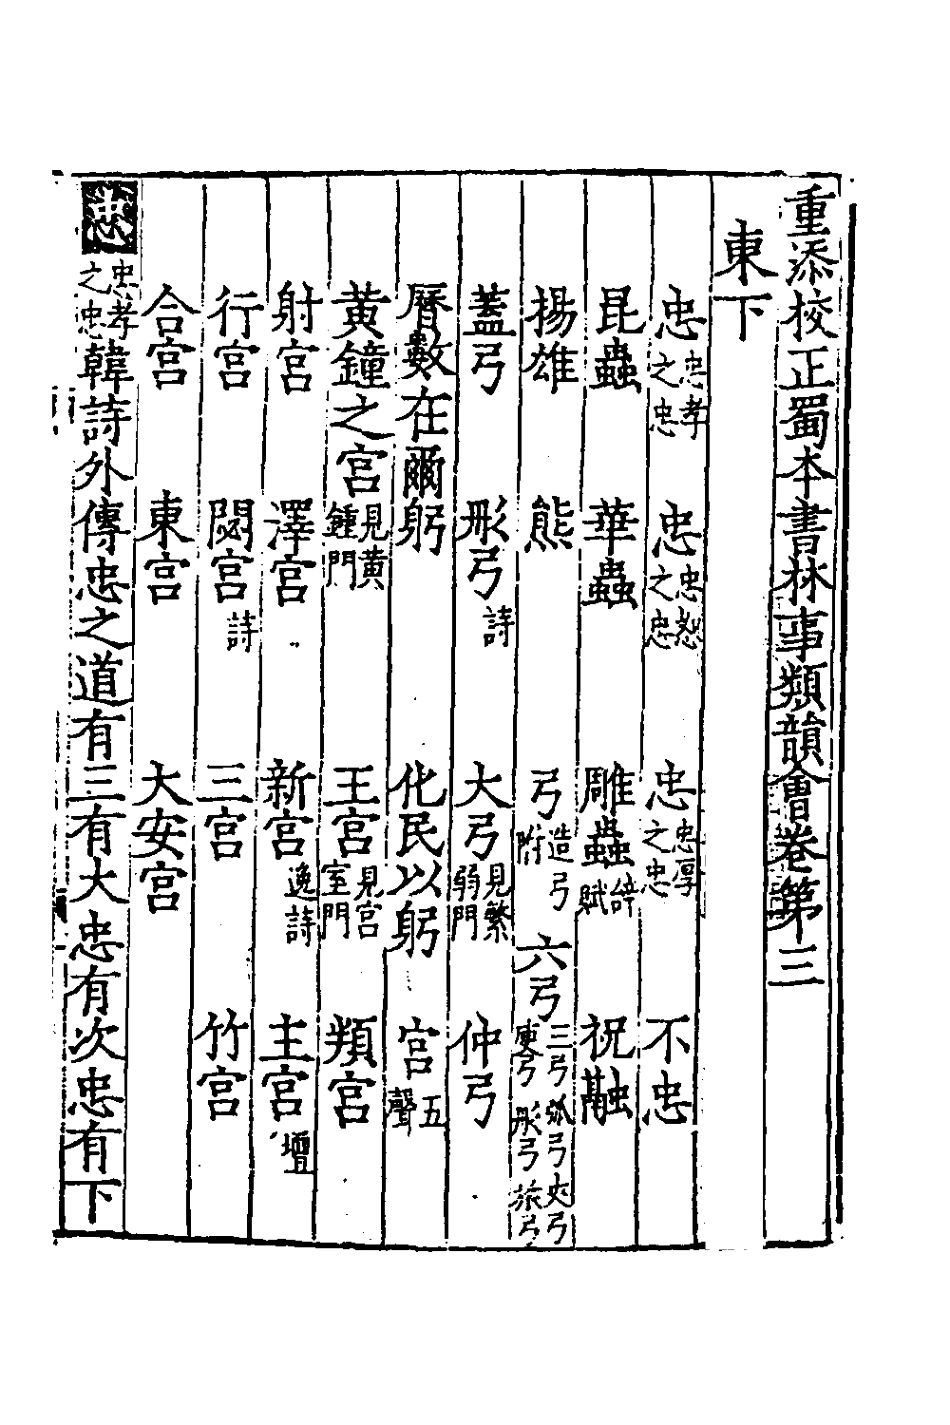 重添校正蜀本書林事類韻會卷第三
東下
忠忠孝之忠 忠忠恕之忠 忠忠厚之忠 不忠
昆蟲 華蟲 雕蟲辭賦 祝融
揚雄 熊 弓造弓附 六弓三弓弧弓夾弓庾弓彤弓旅弓
蓋弓 彤弓詩 大弓見繁弱門 仲弓
曆數在爾躬 化民以躬 宮五聲
黃鐘之宮見黃鍾門 王宮見宮室門 頖宮
射宮 澤宮 新宮逸詩 主宮壇
行宮 閟宮詩 三宮 竹宮
合宮 東宮 大安宮
忠忠孝之忠韓詩外傳忠之道有三有大忠有次忠有下